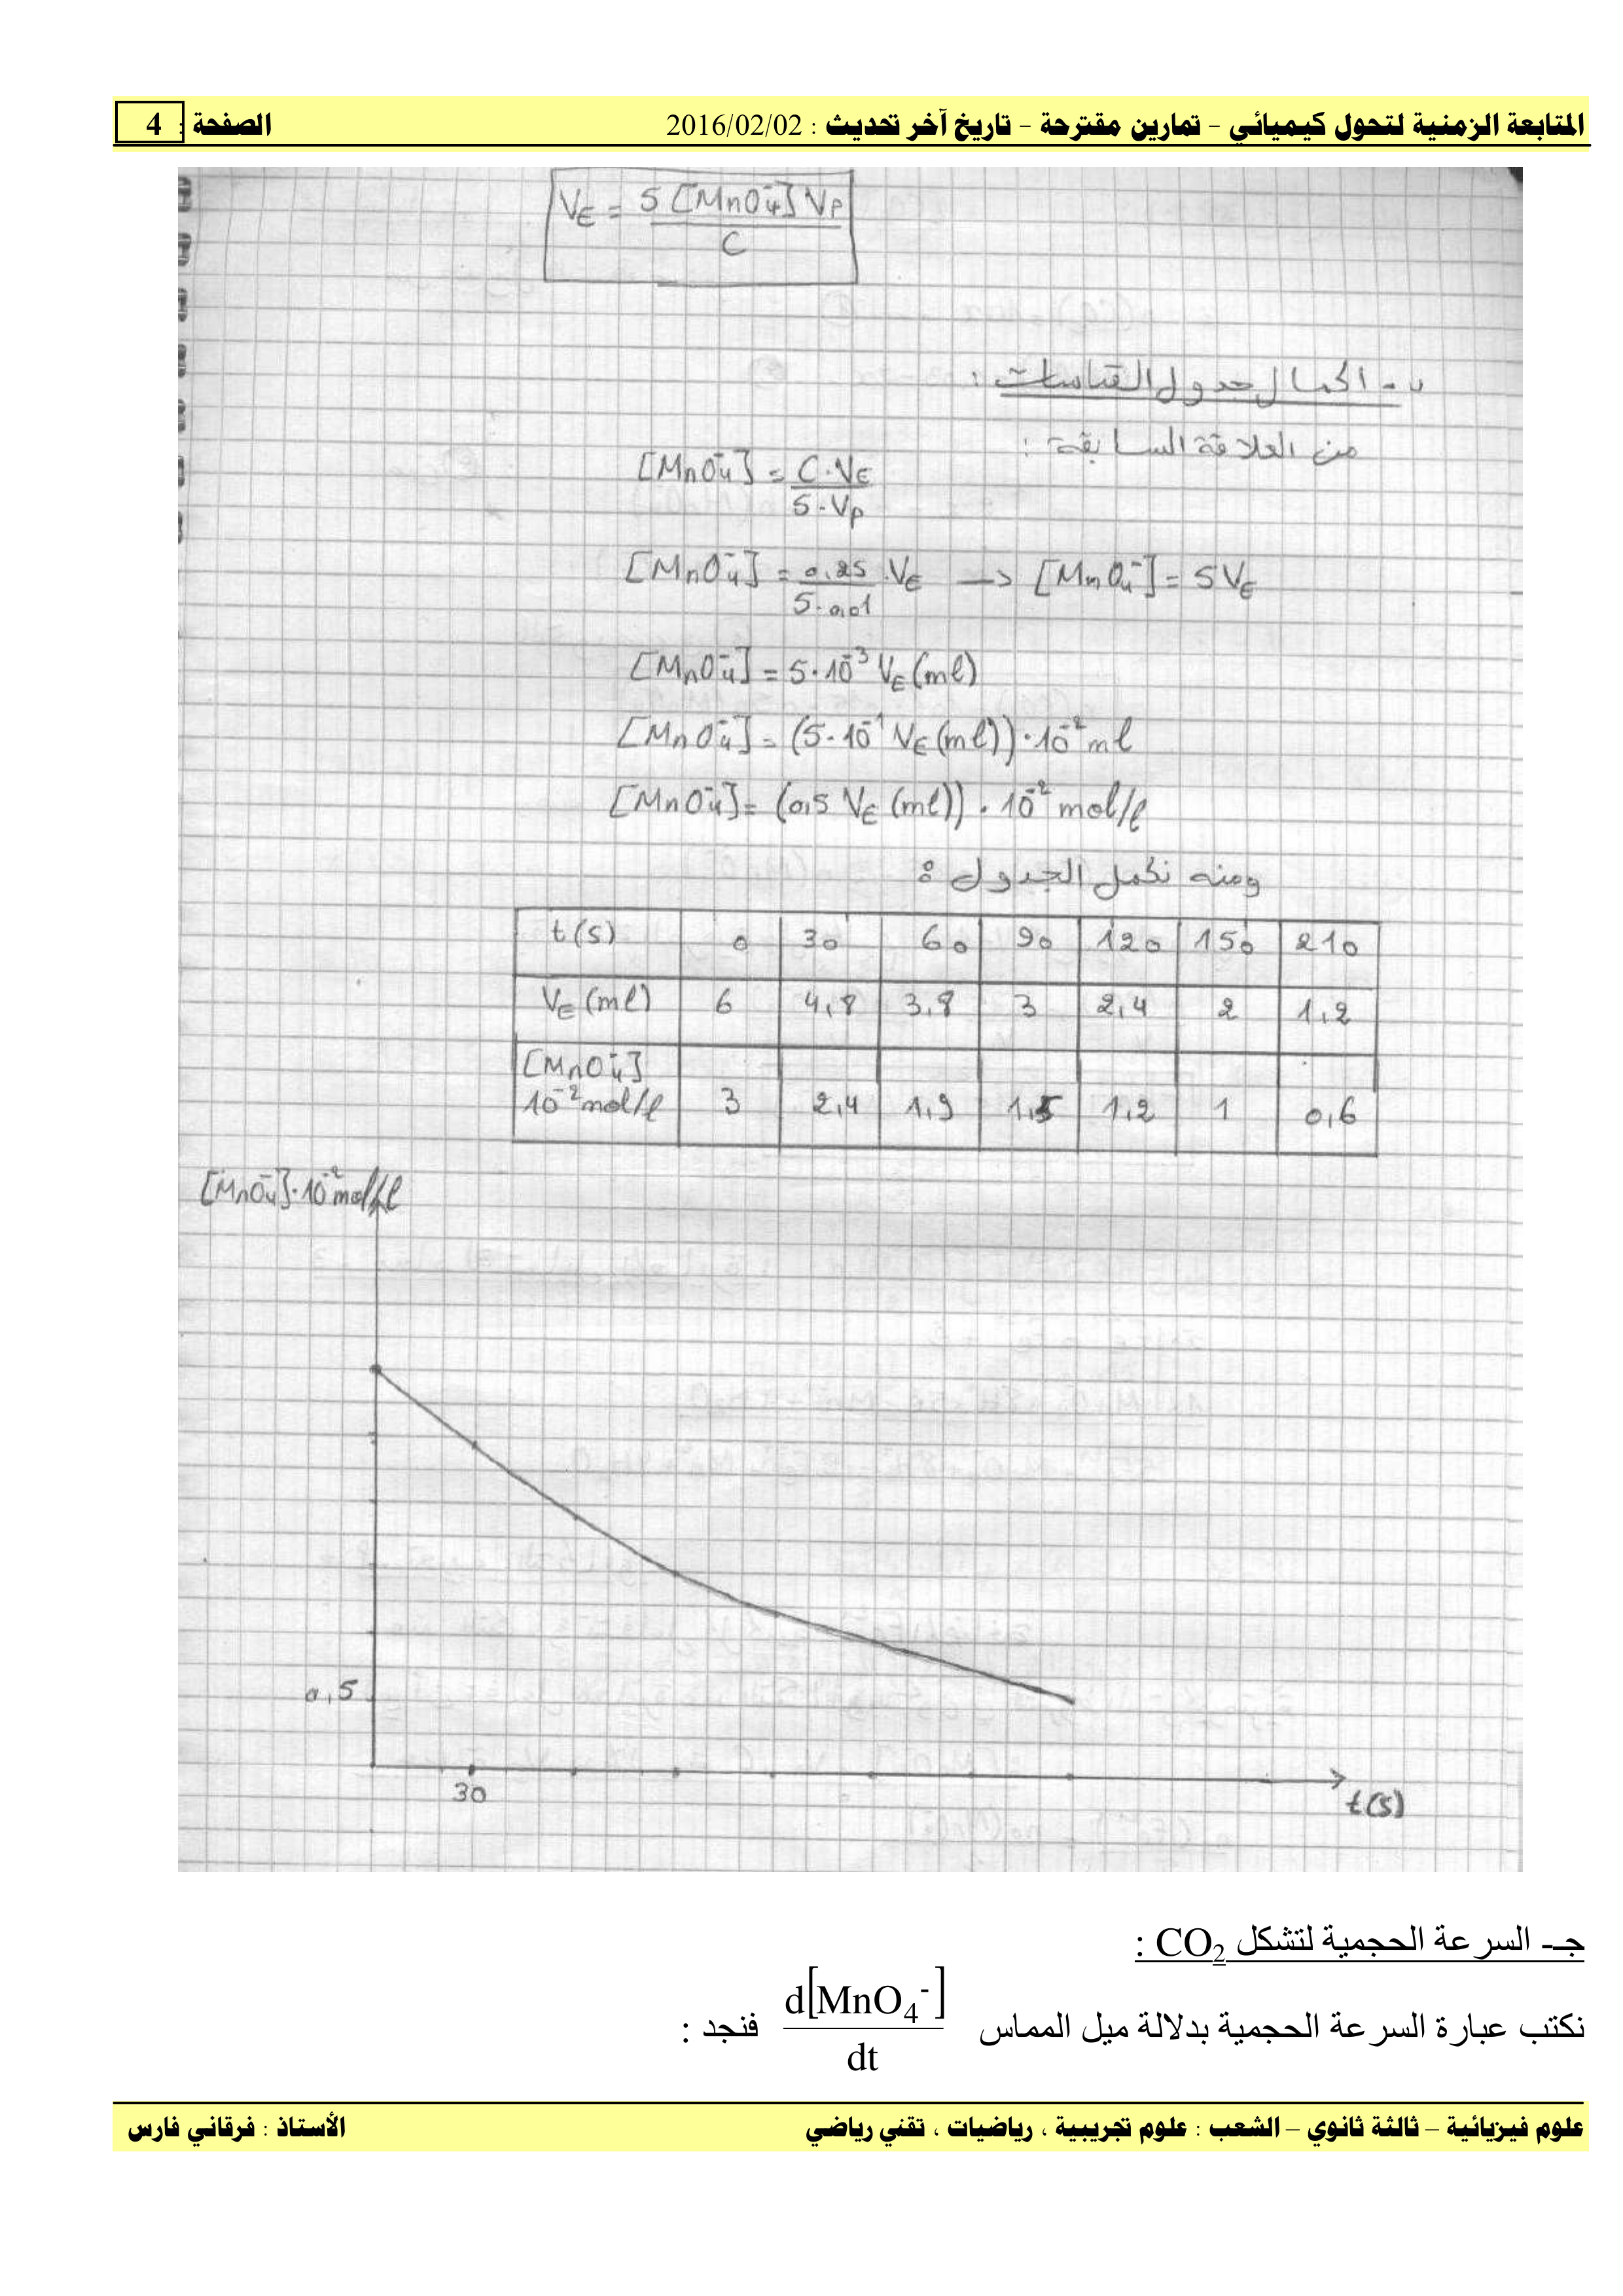 المتابعة الزمنية لتحول كيميائي – تمارين مقترحة – تاريخ آخر تحديث : 2016/02/02 الصفحة : 4
V_E = 5 [MnO₄⁻] V_P / C
ب - اكمال جدول القياسات :
من العلاقة السابقة :
[MnO₄⁻] = C · V_E / 5 · V_P
[MnO₄⁻] = 0,25 / 5 · 0,01 · V_E → [MnO₄⁻] = 5 V_E
[MnO₄⁻] = 5 · 10⁻³ V_E (ml)
[MnO₄⁻] = (5 · 10⁻¹ V_E (ml)) · 10⁻² ml
[MnO₄⁻] = (0,5 V_E (ml)) · 10⁻² mol/l
ومنه نكمل الجدول :
t(s) 0 30 60 90 120 150 210
V_E (ml) 6 4,8 3,8 3 2,4 2 1,2
[MnO₄⁻]
10⁻² mol/l 3 2,4 1,9 1,5 1,2 1 0,6
[MnO₄⁻] · 10⁻² mol/l
0,5
30
t(s)
جـ- السرعة الحجمية لتشكل CO₂ :
نكتب عبارة السرعة الحجمية بدلالة ميل المماس d[MnO₄⁻] / dt فنجد :
علوم فيزيائية – ثالثة ثانوي – الشعب : علوم تجريبية ، رياضيات ، تقني رياضي الأستاذ : فرقاني فارس